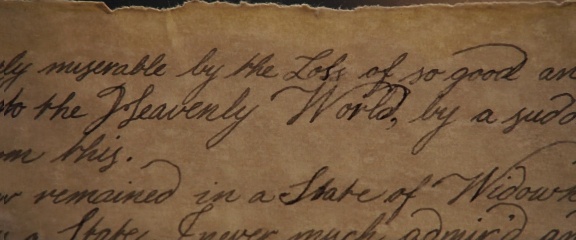 ly miserable by the Loss of so good an
to the Heavenly World, by a sudd
m this.
remained in a State of Widow
a State I never much admir'd an